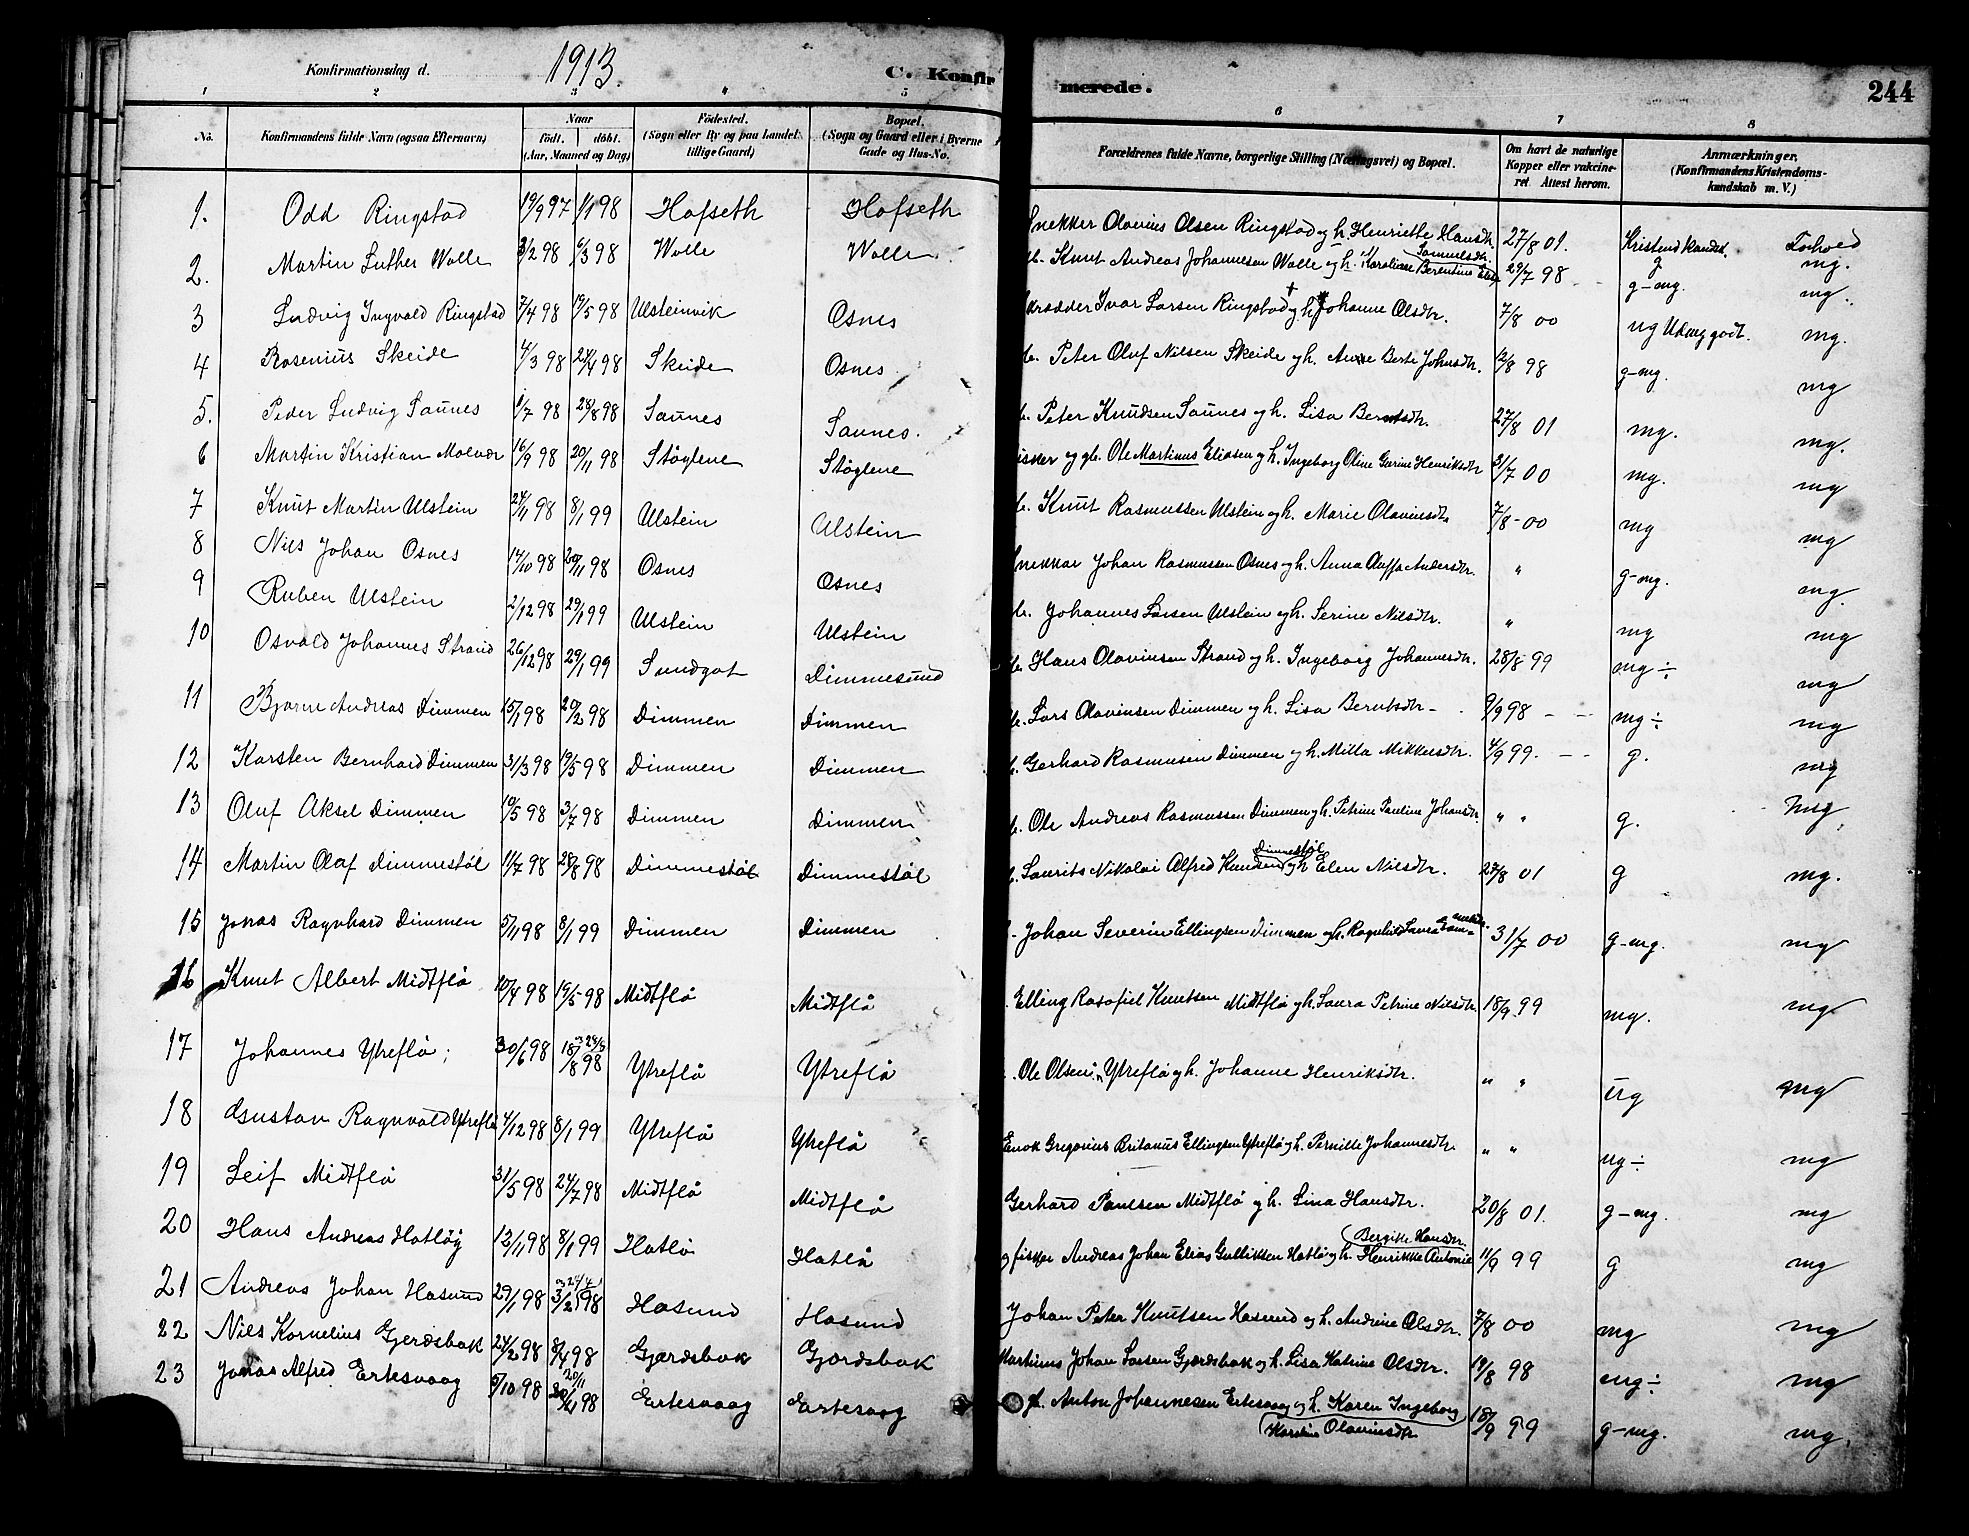 Konfirmationsdag d. 1913. C. Konfir merede. 244
1 2 3 4 5 6 7 8
No. Konfirmandens fulde Navn (ogsaa Efternavn) Naar født. døbt. (Aar, Maaned og Dag) Fødested. (Sogn eller By og paa Landet tillige Gaard) Bopæl. (Sogn og Gaard eller i Byerne Gade og Hus-No. Forældrenes fulde Navne, borgerlige Stilling (Næringsvei) og Bopæl. Om havt de naturlige Kopper eller vaccineret Attest herom. Anmærkninger. (Konfirmandens Kristendomskundskab m. V.)
1. Odd Ringstad 19/9 97 1/1 98 Hofseth Hofseth Snekker Olavius Olsen Ringstad og h. Henriette Hansdtr. 27/8 01. Kristendkundsk. g Forhold mg.
2. Martin Luther Wolle 3/2 98 6/3 98 Wolle Wolle Knut Andreas Johannesen Wolle og h. Karoline Berentine Samuelsdtr. 29/7 98 g-mg. mg.
3 Ludvig Ingvald Ringstad 7/4 98 19/5 98 Ulsteinvik Osnes Skrædder Ivar Larsen Ringstad † og h. Johanne Olsdtr. 7/8 00 ug Udmg godt. mg.
4 Rosenius Skeide 4/3 98 24/4 98 Skeide Osnes. Peter Oluf Nilsen Skeide og h. Anne Berte Johnsdtr. 12/8 98 g-mg. mg
5. Peder Ludvig Saunes 1/7 98 28/8 98 Saunes Saunes. Peter Knudsen Saunes og h. Lisa Berntsdtr. 27/8 01 mg. mg.
6 Martin Kristian Molvær 16/9 98 20/11 98 Støylene Støylene fisker og gb. Ole Martinus Eliasen og h. Ingeborg Oline Gurine Henriksdtr 31/7 00 mg. mg
7 Knut Martin Ulstein 24/11 98 8/1 99 Ulstein Ulstein Knut Rasmussen Ulstein og h. Marie Olavinsdtr 7/8-00 mg mg
8 Nils Johan Osnes 14/10 98 20/11 98 Osnes Osnes Snekker Johan Rasmussen Osnes og h. Anna Andersdtr. " g-mg. mg.
9 Ruben Ulstein 2/12 98 29/1 99 Ulstein Ulstein Johannes Larsen Ulstein og h. Serine Nilsdtr. " mg mg
10 Osvald Johannes Strand 26/12 98 29/1 99 Sundgot Dimmesund Hans Olavinsen Strand og h. Ingeborg Johannesdtr. 28/8 99 mg÷ mg
11 Bjarne Andreas Dimmen 15/1 98 20/2 98 Dimmen Dimmen Lars Olavinsen Dimmen og h. Lisa Berntsdtr 9/9 98 mg÷ mg
12 Karsten Bernhard Dimmen 31/3 98 19/5 98 Dimmen Dimmen Gerhard Rasmussen Dimmen og h. Milla Mikkelsdtr. 4/9 99. g. mg
13 Oluf Aksel Dimmen 10/5 98 3/7 98 Dimmen Dimmen Ole Andreas Rasmussen Dimmen og h. Petrine Pauline Johansdtr. " " g. mg.
14 Martin Olaf Dimmestøl 11/7 98 28/8 98 Dimmestøl Dimmestøl Laurits Nikolai Alfred Knudsen Dimmestøl og h Elen Nilsdtr. 27/8 01 g mg.
15 Jonas Ragnhard Dimmen 5/11 98 8/1 99 Dimmen Dimmen Johan Severin Ellingsen Dimmen og h. 31/7 00 g-mg. mg
16 Knut Albert Midtflø 10/4 98 19/5 98 Midtflø Midtflø Elling Rasofiel Knutsen Midtflø og h. Laura Petrine Nilsdtr. 18/9 99 mg. mg
17 Johannes Ytreflø; 30/6 98 18/8 98 Ytreflø Ytreflø Ole Olsen Ytreflø og h. Johanne Henriksdtr. " " ug mg
18 Gustav Ragnvald Ytreflø 4/12 98 8/1 99 Ytreflø Ytreflø Enok Gregorius Britanus Ellingsen Ytreflø og h. Pernille Johannesdtr. " " ug÷ mg
19 Leif Midtflø 31/5 98 24/7 98 Midtflø Midtflø Gerhard Paulsen Midtflø og h. Lina Hansdtr. 20/8 01. g-mg. mg
20 Hans Andreas Hatløy 12/11 98 8/1 99 Hatlø Hatlø og fisker Andreas Johan Elias Gullikken Hatlø og h. Henrikke Antonie Bergitte Hansdtr. 11/9 99 g mg
21 Andreas Johan Hasund 29/1 98 3/2 98 Hasund Hasund Johan Peter Knutsen Hasund og h. Andrine Olsdtr. 7/8 00 mg mg
22 Nils Kornelius Gjerdsbak 24/2 98 8/4 98 Gjærdsbak Gjærdsbak Martinus Johan Larsen Gjærdsbak og h. Lisa Katrine Olsdtr. 19/8 98 mg÷ mg
23 Jonas Alfred Ertesvaag 5/10 98 20/11 98 Ertesvaag Ertesvaag Anton Johannesen Ertesvaag og h. Karen Ingeborg Olavinsdtr 18/9 99 g-mg. mg.